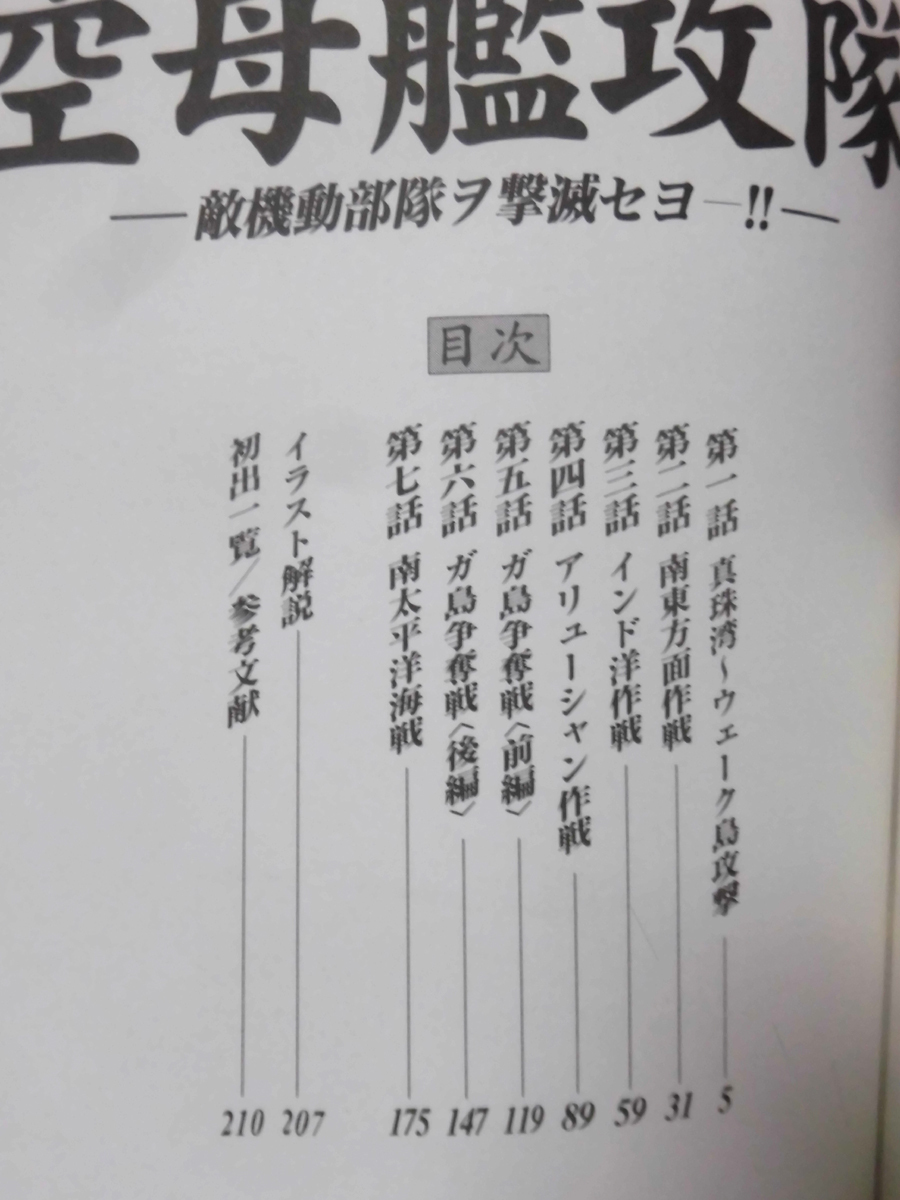 空母艦攻隊
—敵機動部隊ヲ撃滅セヨ—!!—
目次
第一話 真珠湾〜ウェーク島攻撃 5
第二話 南東方面作戦 31
第三話 インド洋作戦 59
第四話 アリューシャン作戦 89
第五話 ガ島争奪戦〈前編〉 119
第六話 ガ島争奪戦〈後編〉 147
第七話 南太平洋海戦 175
イラスト解説 207
初出一覧/参考文献 210